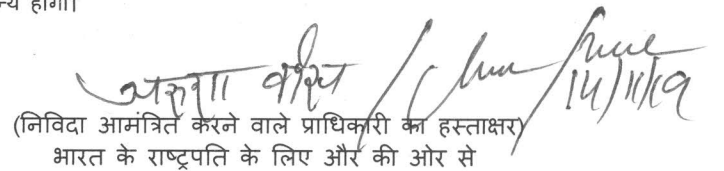 न्य होगा।
अरुणा
14/11/19
(निविदा आमंत्रित करने वाले प्राधिकारी का हस्ताक्षर)
भारत के राष्ट्रपति के लिए और की ओर से